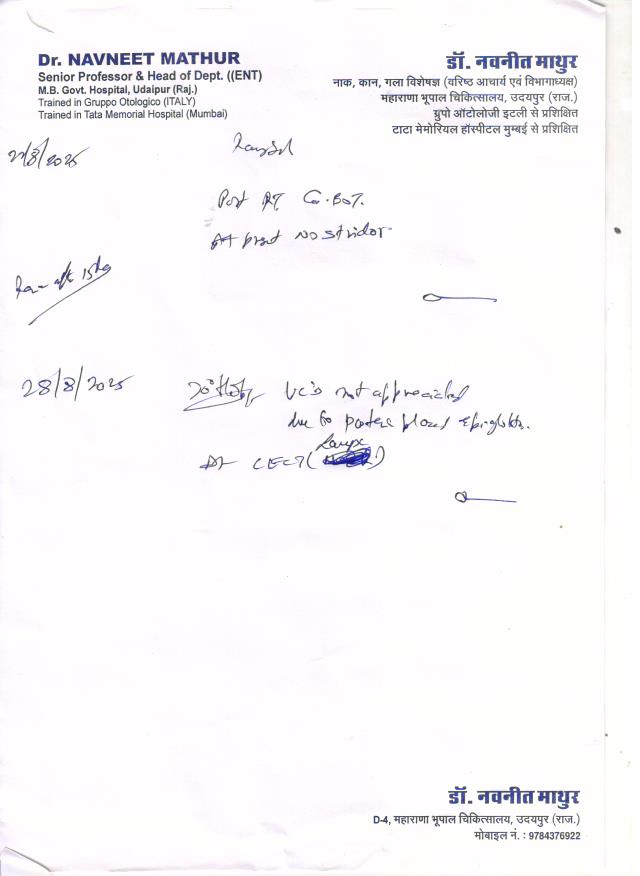 Dr. NAVNEET MATHUR
Senior Professor & Head of Dept. ((ENT)
M.B. Govt. Hospital, Udaipur (Raj.)
Trained in Gruppo Otologico (ITALY)
Trained in Tata Memorial Hospital (Mumbai)
डॉ. नवनीत माथुर
नाक, कान, गला विशेषज्ञ (वरिष्ठ आचार्य एवं विभागाध्यक्ष)
महाराणा भूपाल चिकित्सालय, उदयपुर (राज.)
ग्रुपो ऑटोलोजी इटली से प्रशिक्षित
टाटा मेमोरियल हॉस्पीटल मुम्बई से प्रशिक्षित
/8/2025
Post RT Ca. BOT.
At present NO stridor
28/8/2025
VC's not appreciated
due to placed Epiglottis.
CECT (Larynx)
डॉ. नवनीत माथुर
D-4, महाराणा भूपाल चिकित्सालय, उदयपुर (राज.)
मोबाइल नं. : 9784376922